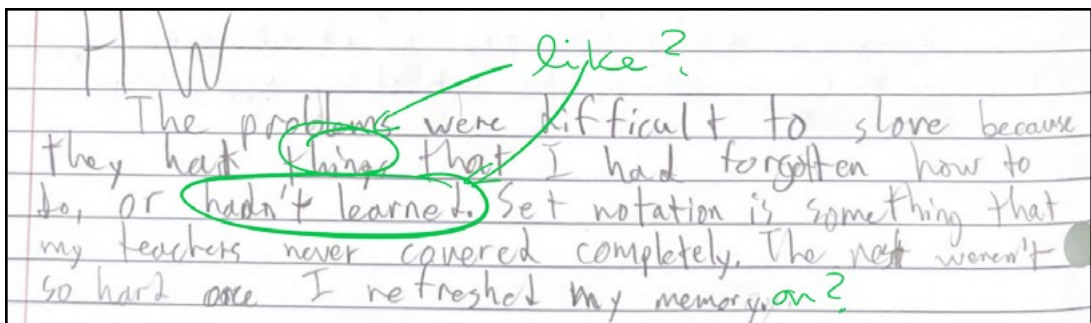 HW
like?
The problems were difficult to slove because
they had things that I had forgotten how to
do, or hadn't learned. Set notation is something that
my teachers never covered completely. The rest weren't
so hard once I refreshed my memory. on?